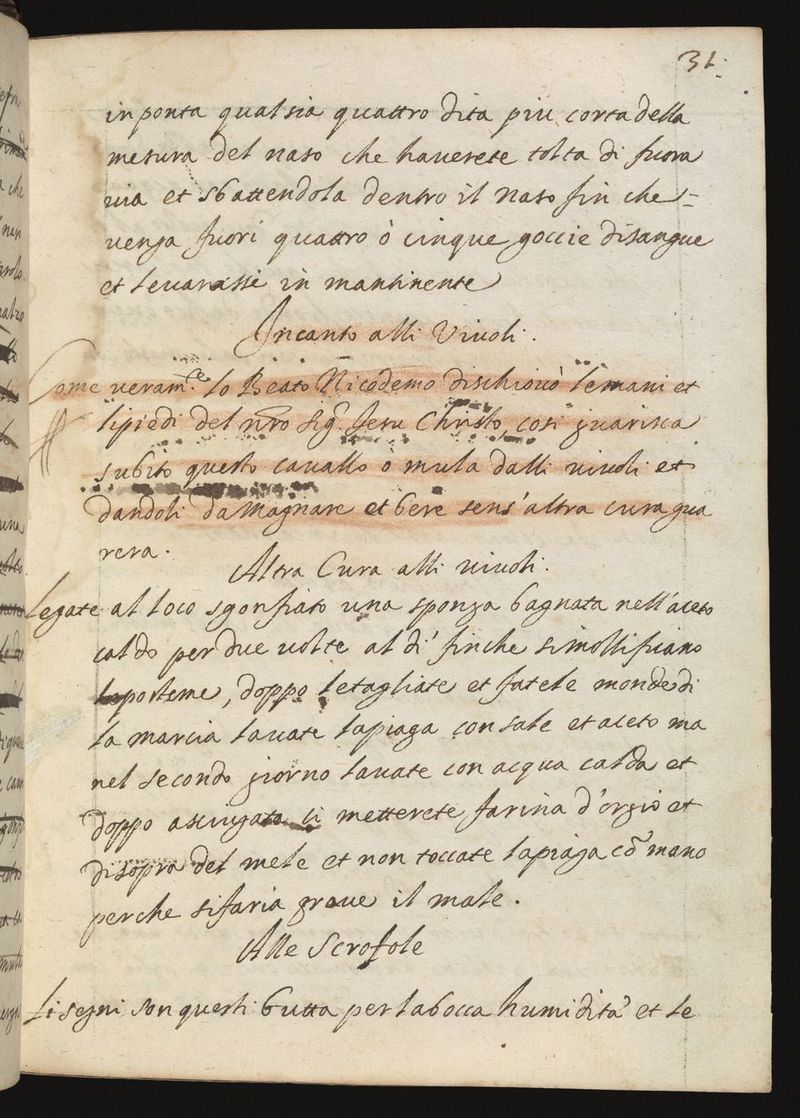 31.
in ponta qual sia quattro dita piu corta della
mesura del naso che haverete tolta di fuora
via et sbattendola dentro il naso fin che=
venga fuori quattro ò cinque goccie di sangue
et levarassi in mantinente
Incanto alli Vivoli.
Come veram.te lo Beato Nicodemo dischiovò le mani et
li piedi del nro Sig.r Jesu Christo, cosi guarisca
subito questo cavallo ò mula dalli vivoli et
dandoli da magnare et bere sens'altra cura gua
rera.
Altra Cura alli vivoli.
Legate al loco sgonfiato una sponza bagnata nell'aceto
caldo per due volte al di' finche si mollifiano
la posteme, doppo le tagliate et fatele monde di
la marcia lavate la piaga con sale et aceto ma
nel secondo giorno lavate con acqua calda et
doppo asciugata li metterete farina d'orgio et
di sopra del mele et non toccate la piaga cō mano
perche si faria grave il male.
Alle Scrofole
Li segni son questi butta per la bocca humidita' et le